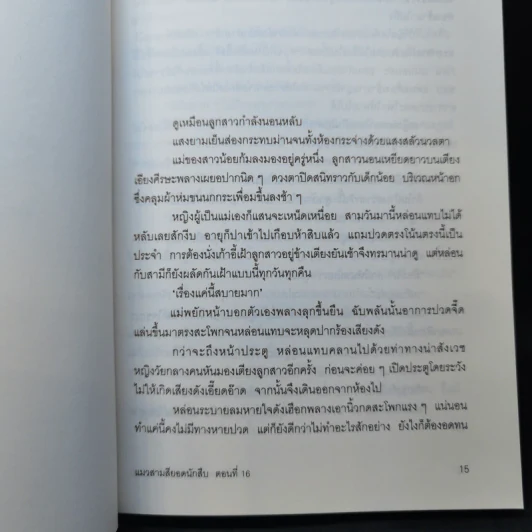 ดูเหมือนลูกสาวกำลังนอนหลับ
แสงยามเย็นส่องกระทบม่านจนทั้งห้องกระจ่างด้วยแสงสลัวนวลตา
แม่ของสาวน้อยก้มลงมองอยู่ครู่หนึ่ง ลูกสาวนอนเหยียดยาวบนเตียง
เอียงศีรษะพลางเผยอปากนิด ๆ ดวงตาปิดสนิทราวกับเด็กน้อย บริเวณหน้าอก
ซึ่งคลุมผ้าห่มขนนกกระเพื่อมขึ้นลงช้า ๆ
หญิงผู้เป็นแม่เองก็แสนจะเหน็ดเหนื่อย สามวันมานี้หล่อนแทบไม่ได้
หลับเลยสักงีบ อายุก็ปาเข้าไปเกือบห้าสิบแล้ว แถมปวดตรงโน้นตรงนี้เป็น
ประจำ การต้องนั่งเก้าอี้เฝ้าลูกสาวอยู่ข้างเตียงยันเช้าจึงทรมานน่าดู แต่หล่อน
กับสามีก็ยังผลัดกันเฝ้าแบบนี้ทุกวันทุกคืน
'เรื่องแค่นี้สบายมาก'
แม่พยักหน้าบอกตัวเองพลางลุกขึ้นยืน ฉับพลันนั้นอาการปวดจี๊ด
แล่นขึ้นมาตรงสะโพกจนหล่อนแทบจะหลุดปากร้องเสียงดัง
กว่าจะถึงหน้าประตู หล่อนแทบคลานไปด้วยท่าทางน่าสังเวช
หญิงวัยกลางคนหันมองเตียงลูกสาวอีกครั้ง ก่อนจะค่อย ๆ เปิดประตูโดยระวัง
ไม่ให้เกิดเสียงดังเอี๊ยดอ๊าด จากนั้นจึงเดินออกจากห้องไป
หล่อนระบายลมหายใจดังเฮือกพลางเอานิ้วกดสะโพกแรง ๆ แน่นอน
ทำแค่นี้คงไม่มีทางหายปวด แต่ก็ยังดีกว่าไม่ทำอะไรสักอย่าง ยังไงก็ต้องอดทน
แมวสามสียอดนักสืบ ตอนที่ 16
15